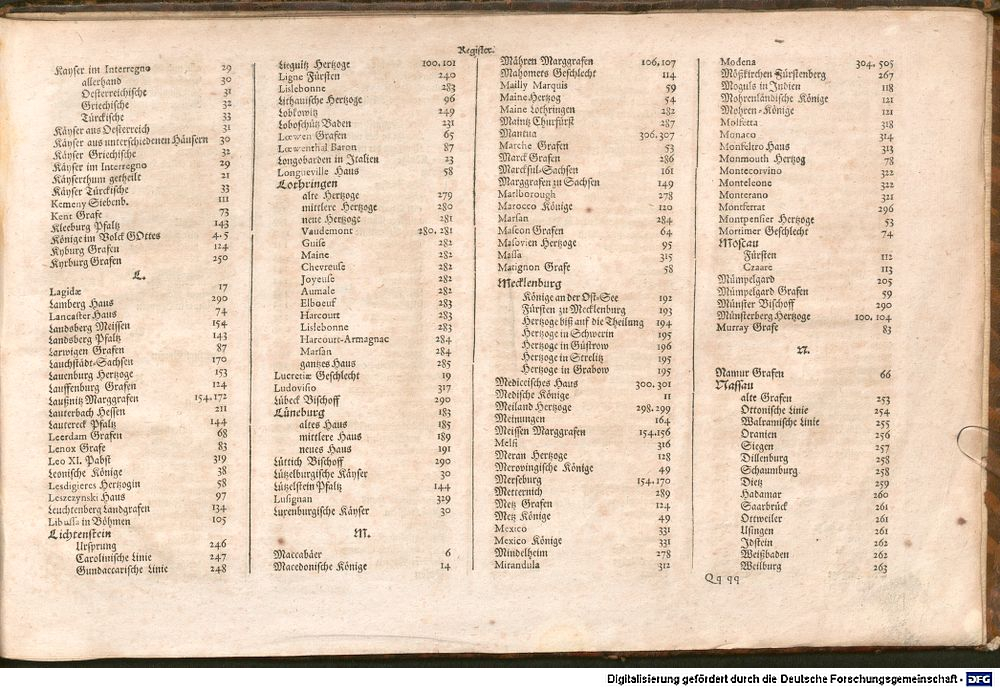 Register.
Kayser im Interregno 29
allerhand 30
Oesterreichische 31
Griechische 32
Türckische 33
Käyser aus Oesterreich 31
Käyser aus unterschiedenen Häusern 30
Käyser Griechische 32
Käyser im Interregno 29
Käyserthum getheilt 21
Käyser Türckische 33
Kemeny Siebenb. 111
Kent Grafe 73
Kleeburg Pfaltz 143
Könige im Volck GOttes 4.5
Kyburg Grafen 124
Kyrburg Grafen 250
L.
Lagidæ 17
Lamberg Haus 290
Lancaster Haus 74
Landsberg Meissen 154
Landsberg Pfaltz 143
Larwigen Grafen 87
Lauchstädt-Sachsen 170
Lauenburg Hertzoge 153
Lauffenburg Grafen 124
Laußnitz Marggrafen 154.172
Lauterbach Hessen 211
Lautereck Pfaltz 144
Leerdam Grafen 68
Lenox Grafe 83
Leo XI. Pabst 319
Leonische Könige 38
Lesdigieres Hertzogin 58
Leszczynski Haus 97
Leuchtenberg Landgrafen 134
Libussa in Böhmen 105
Lichtenstein
Ursprung 246
Carolinische Linie 247
Gundaccarische Linie 248
Liegnitz Hertzoge 100.101
Ligne Fürsten 240
Lislebonne 283
Lithauische Hertzoge 96
Lobkowitz 249
Loboschütz Baden 231
Loewen Grafen 65
Loewenthal Baron 87
Longobarden in Italien 23
Longueville Haus 58
Lothringen
alte Hertzoge 279
mittlere Hertzoge 280
neue Hertzoge 281
Vaudemont 280.281
Guise 282
Maine 282
Chevreuse 282
Joyeuse 282
Aumale 282
Elboeuf 283
Harcourt 283
Lislebonne 283
Harcourt-Armagnac 284
Marsan 284
gantzes Haus 285
Lucretiæ Geschlecht 19
Ludovisio 317
Lübeck Bischoff 290
Lüneburg 183
altes Haus 185
mittlere Haus 189
neues Haus 191
Lüttich Bischoff 290
Lützelburgische Käyser 30
Lützelstein Pfaltz 144
Lusignan 329
Luxenburgische Käyser 30
M.
Maccabäer 6
Macedonische Könige 14
Mähren Marggrafen 106,107
Mahomets Geschlecht 114
Mailly Marquis 59
Maine Hertzog 54
Maine Lothringen 282
Maintz Churfürst 287
Mantua 306.307
Marche Grafen 53
Marck Grafen 286
Marcksul-Sachsen 161
Marggrafen zu Sachsen 149
Marlborough 278
Marocco Könige 120
Marsan 284
Mascon Grafen 64
Masovien Hertzoge 95
Massa 315
Matignon Grafe 58
Mecklenburg
Könige an der Ost-See 192
Fürsten zu Mecklenburg 193
Hertzoge biß auf die Theilung 194
Hertzoge in Schwerin 195
Hertzoge in Güstrow 196
Hertzoge in Strelitz 195
Hertzoge in Grabow 195
Mediceisches Haus 300.301
Medische Könige 11
Meiland Hertzoge 298.299
Meinungen 164
Meissen Marggrafen 154.156
Melfi 316
Meran Hertzoge 128
Merovingische Könige 49
Merseburg 154.170
Metternich 289
Metz Grafen 124
Metz Könige 49
Mexico 331
Mexico Könige 331
Mindelheim 278
Mirandula 312
Modena 304.505
Mößkirchen Fürstenberg 267
Moguls in Indien 118
Mohrenländische Könige 121
Mohren-Könige 121
Molfetta 318
Monaco 314
Monfeltro Haus 313
Monmouth Hertzog 78
Montecorvino 322
Monteleone 322
Monterano 321
Montferrat 296
Montpensier Hertzoge 53
Mortimer Geschlecht 74
Moscau
Fürsten 112
Czaare 113
Mümpelgard 205
Mümpelgard Grafen 59
Münster Bischoff 290
Münsterberg Hertzoge 100.104
Murray Grafe 83
N.
Namur Grafen 66
Nassau
alte Grafen 253
Ottonische Linie 254
Walramische Linie 255
Oranien 256
Siegen 257
Dillenburg 258
Schaumburg 258
Dietz 259
Hadamar 260
Saarbrück 261
Ottweiler 261
Usingen 261
Idstein 262
Weißbaden 262
Weilburg 263
Qq qq
Digitalisierung gefördert durch die Deutsche Forschungsgemeinschaft - DFG